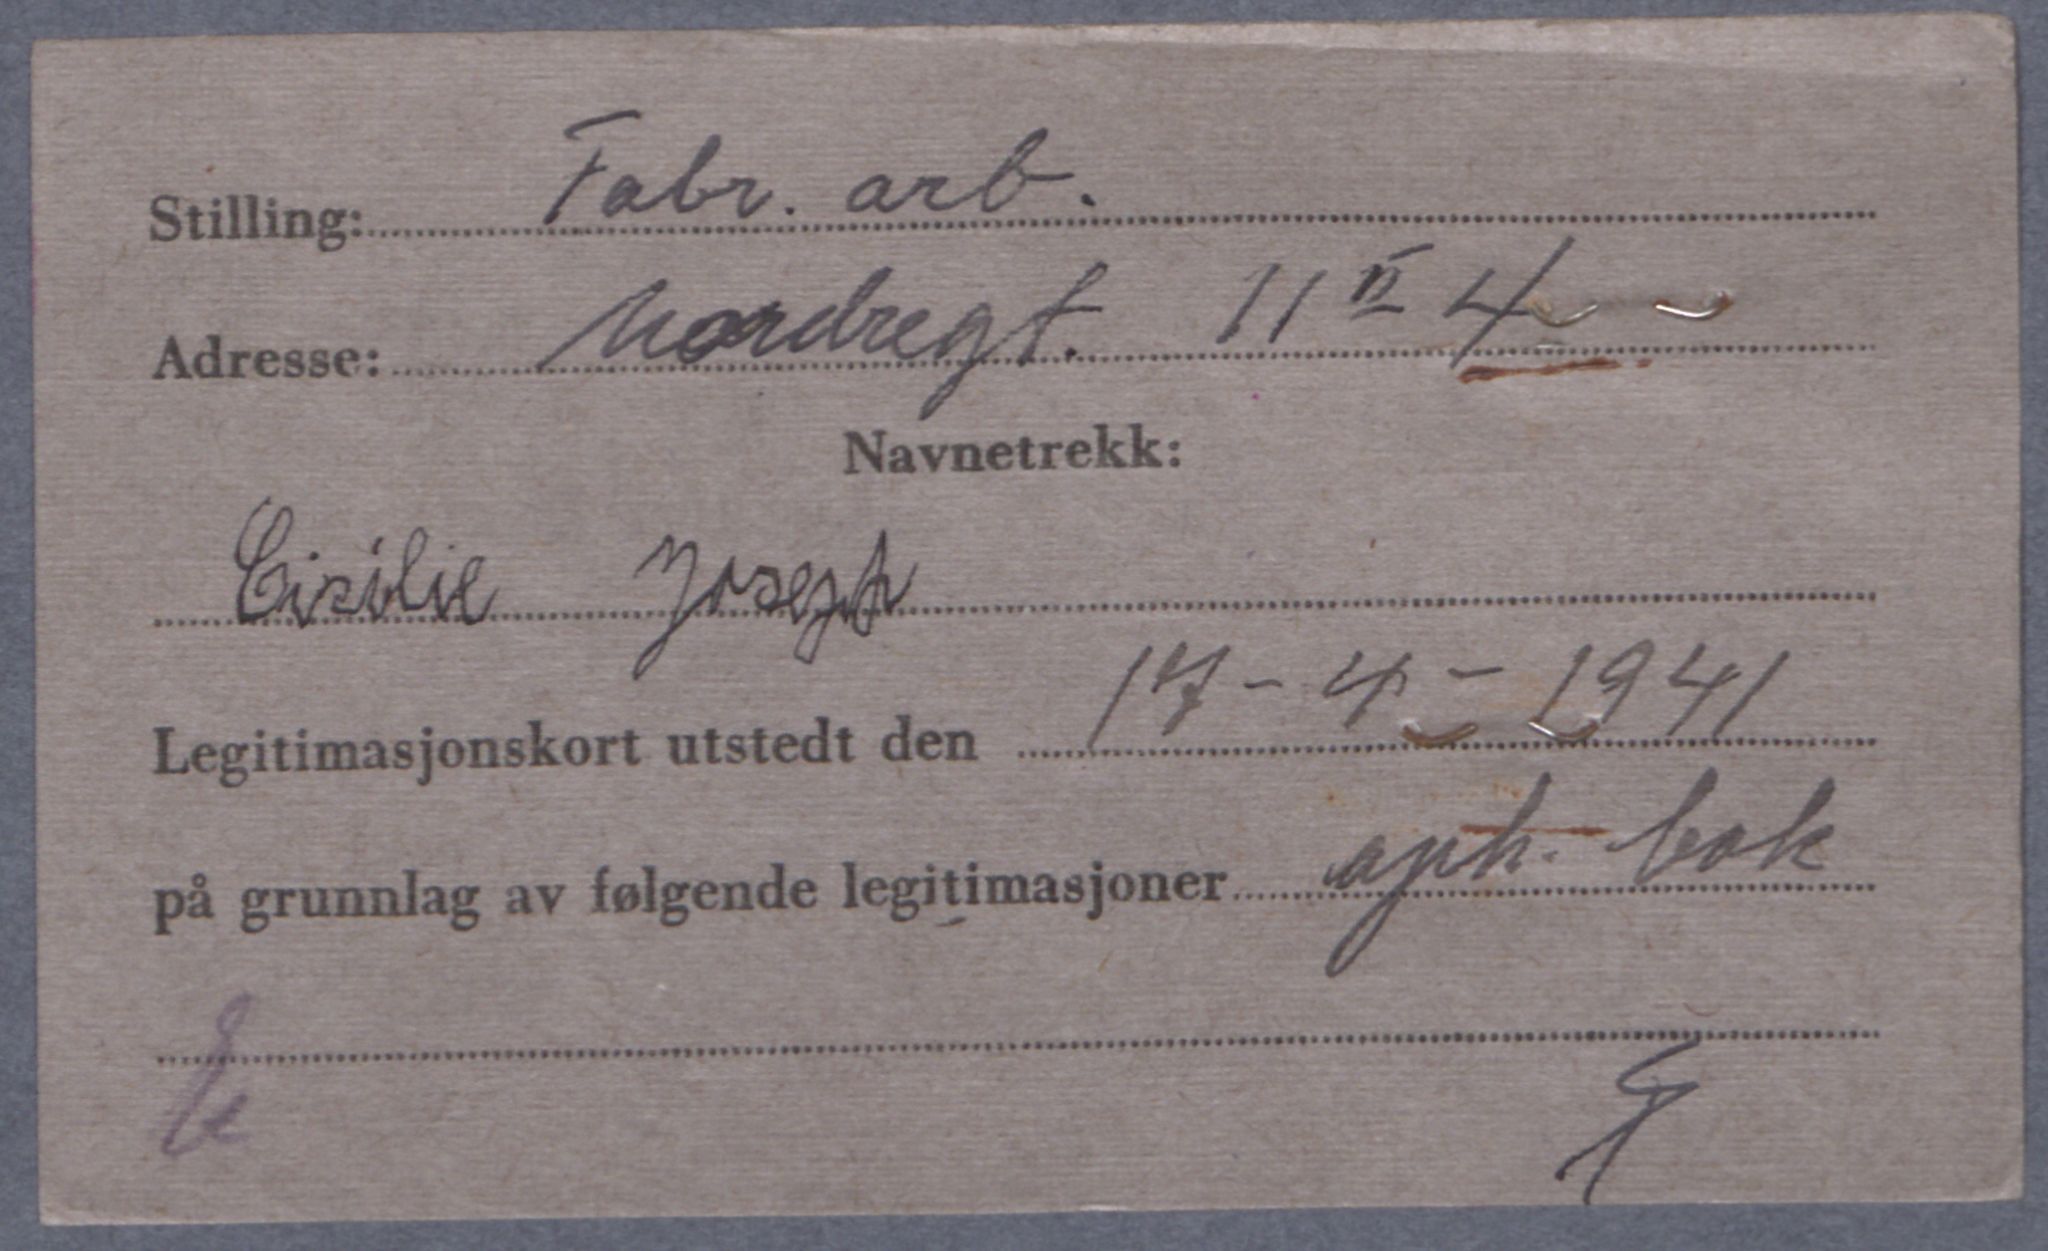 Stilling: Fabr. arb.
Adresse: Nordregt. 11 II 4
Navnetrekk:
Cisilie Joseph
Legitimasjonskort utstedt den 17-4-1941
på grunnlag av følgende legitimasjoner oph. bok